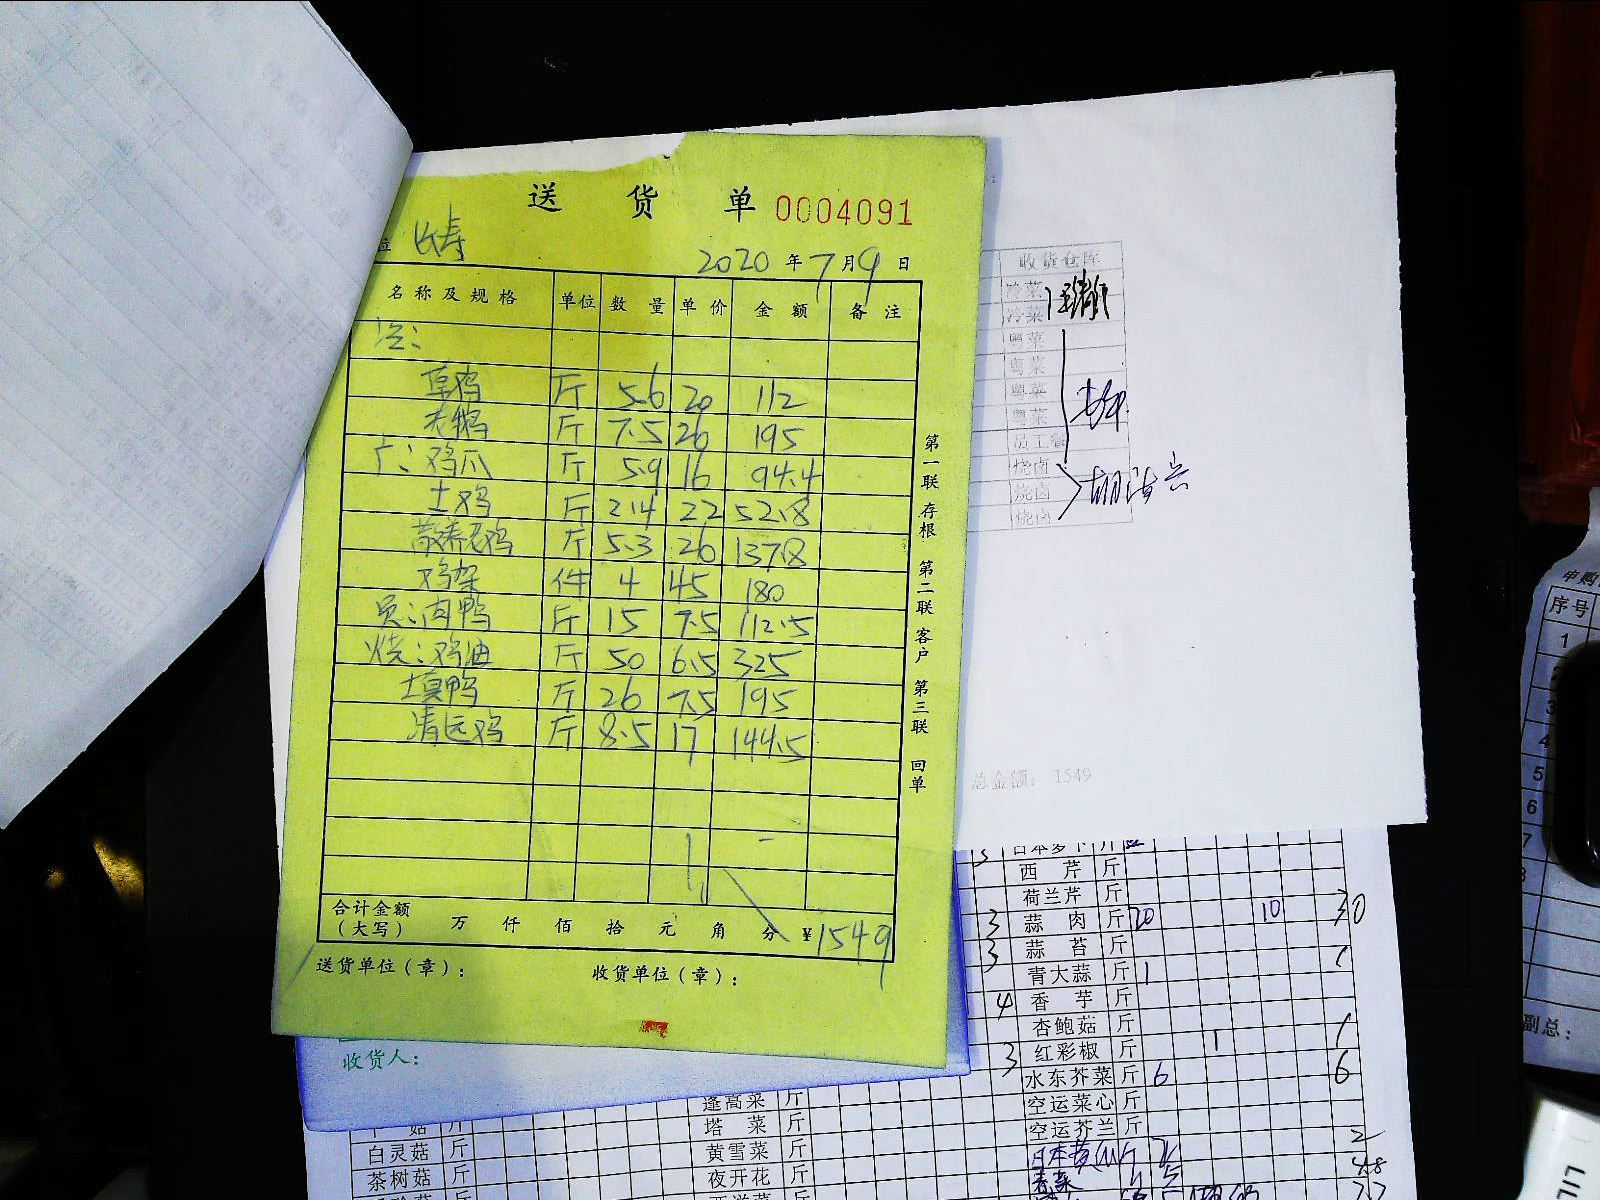 送 货 单 0004091
位 长寿
2020 年 7 月 9 日
名称及规格 单位 数量 单价 金额 备注
冷:
草鸡 斤 5.6 20 112
老鹅 斤 7.5 26 195
广:鸡爪 斤 5.9 16 94.4
土鸡 斤 2.4 22 52.8
散养老鸡 斤 5.3 26 137.8
鸡架 件 4 45 180
员:肉鸭 斤 15 7.5 112.5
烧:鸡油 斤 50 6.5 325
填鸭 斤 26 7.5 195
清远鸡 斤 8.5 17 144.5
合计金额
(大写) 万 仟 佰 拾 元 角 分 ¥1549
送货单位(章): 收货单位(章):
第一联 存根 第二联 客户 第三联 回单
收货人:
收货仓库
冷菜
冷菜
粤菜
粤菜
粤菜
粤菜
员工餐
烧卤
烧卤
烧卤
总金额: 1549
日本萝卜 斤
西芹 斤
荷兰芹 斤
3 蒜肉 斤 20 10 30
3 蒜苔 斤
青大蒜 斤 1 1
4 香芋 斤
杏鲍菇 斤
3 红彩椒 斤 1 1
水东芥菜 斤 6 6
空运菜心 斤
空运芥兰 斤
蓬蒿菜 斤
塔菜 斤
白灵菇 斤 黄雪菜 斤
茶树菇 斤 夜开花 斤
申购
序号
1
3
4
5
6
7
副总: